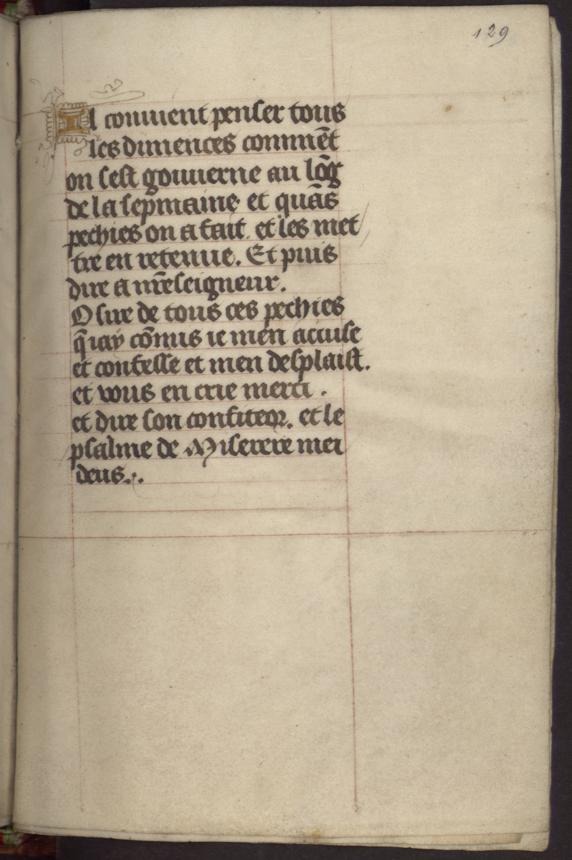 129
Il conuient penser tous
les dimences comme͂t
on sest gouuerne au lo͂g
de la sepmaine et qua͂s
pechies on a fait et les met/
tre en retenue. Et puis
dire a nr͂eseigneur.
O sire de tous ces pechies
q͂ iay co͂mis ie men accuse
et confesse et men desplaist.
et vous en crie merci .
et dire son confiteor. et le
psalme de Miserere mei
deus..